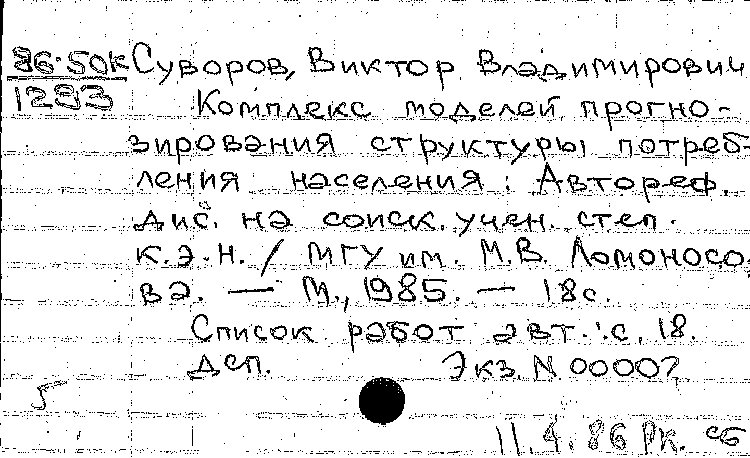 86-50к Суворов, Виктор Владимирович
1293
Комплекс моделей прогно-
зирования структуры потреб-
ления населения: Автореф.
дис. на соиск. учен. степ.
к.э.н. / МГУ им. М.В. Ломоносо-
ва. — М., 1985. — 18с.
Список работ авт.: с. 18.
Дсп. Экз. N 00007
5
11.4.86 РК. сб